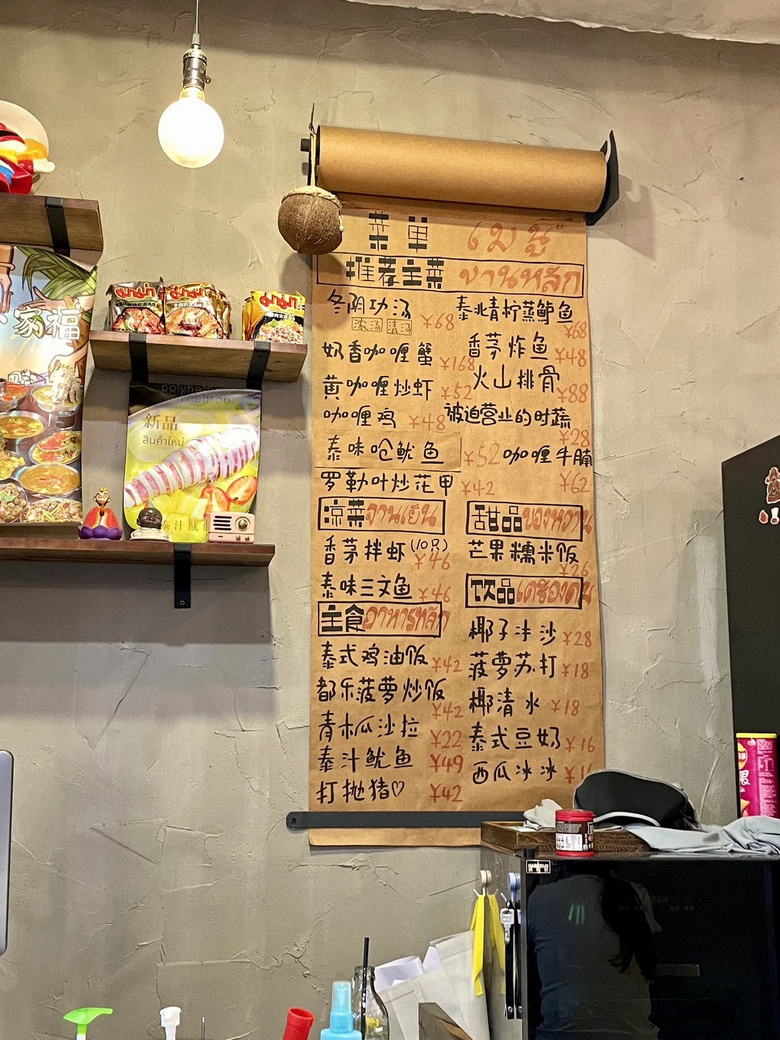 菜单 เมนู
推荐主菜 จานหลัก
冬阴功汤
浓汤 清汤 ¥68
奶香咖喱蟹 ¥168
黄咖喱炒虾 ¥52
咖喱鸡 ¥48
泰味呛鱿鱼 ¥52
罗勒叶炒花甲 ¥42
泰北青柠蒸鲈鱼 ¥68
香茅炸鱼 ¥48
火山排骨 ¥88
被迫营业的时蔬 ¥28
咖喱牛腩 ¥62
凉菜 จานเย็น
香茅拌虾(10只) ¥46
泰味三文鱼 ¥46
主食 อาหารหลัก
泰式鸡油饭 ¥42
都乐菠萝炒饭 ¥42
青木瓜沙拉 ¥22
泰汁鱿鱼 ¥49
打抛猪♡ ¥42
甜品 ของหวาน
芒果糯米饭 ¥26
饮品 เครื่องดื่ม
椰子冰沙 ¥28
菠萝苏打 ¥18
椰清水 ¥18
泰式豆奶 ¥16
西瓜冰冰
家福
新品
สินค้าใหม่
泰汁鱿
มาม่า
มาม่า
มาม่า